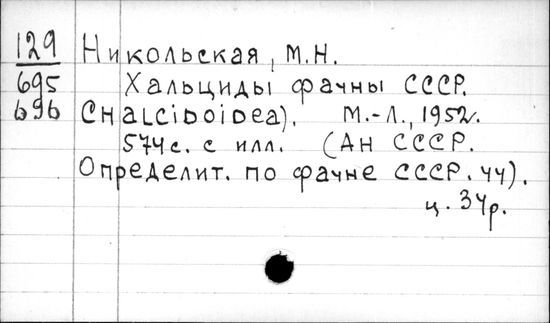 129 Никольская, М.Н.
695 Хальциды фауны СССР.
696 Chalcidoidea). М.-Л., 1952.
574 с. с илл. (Ан СССР.
Определит. по фауне СССР. 44).
ц. 34р.